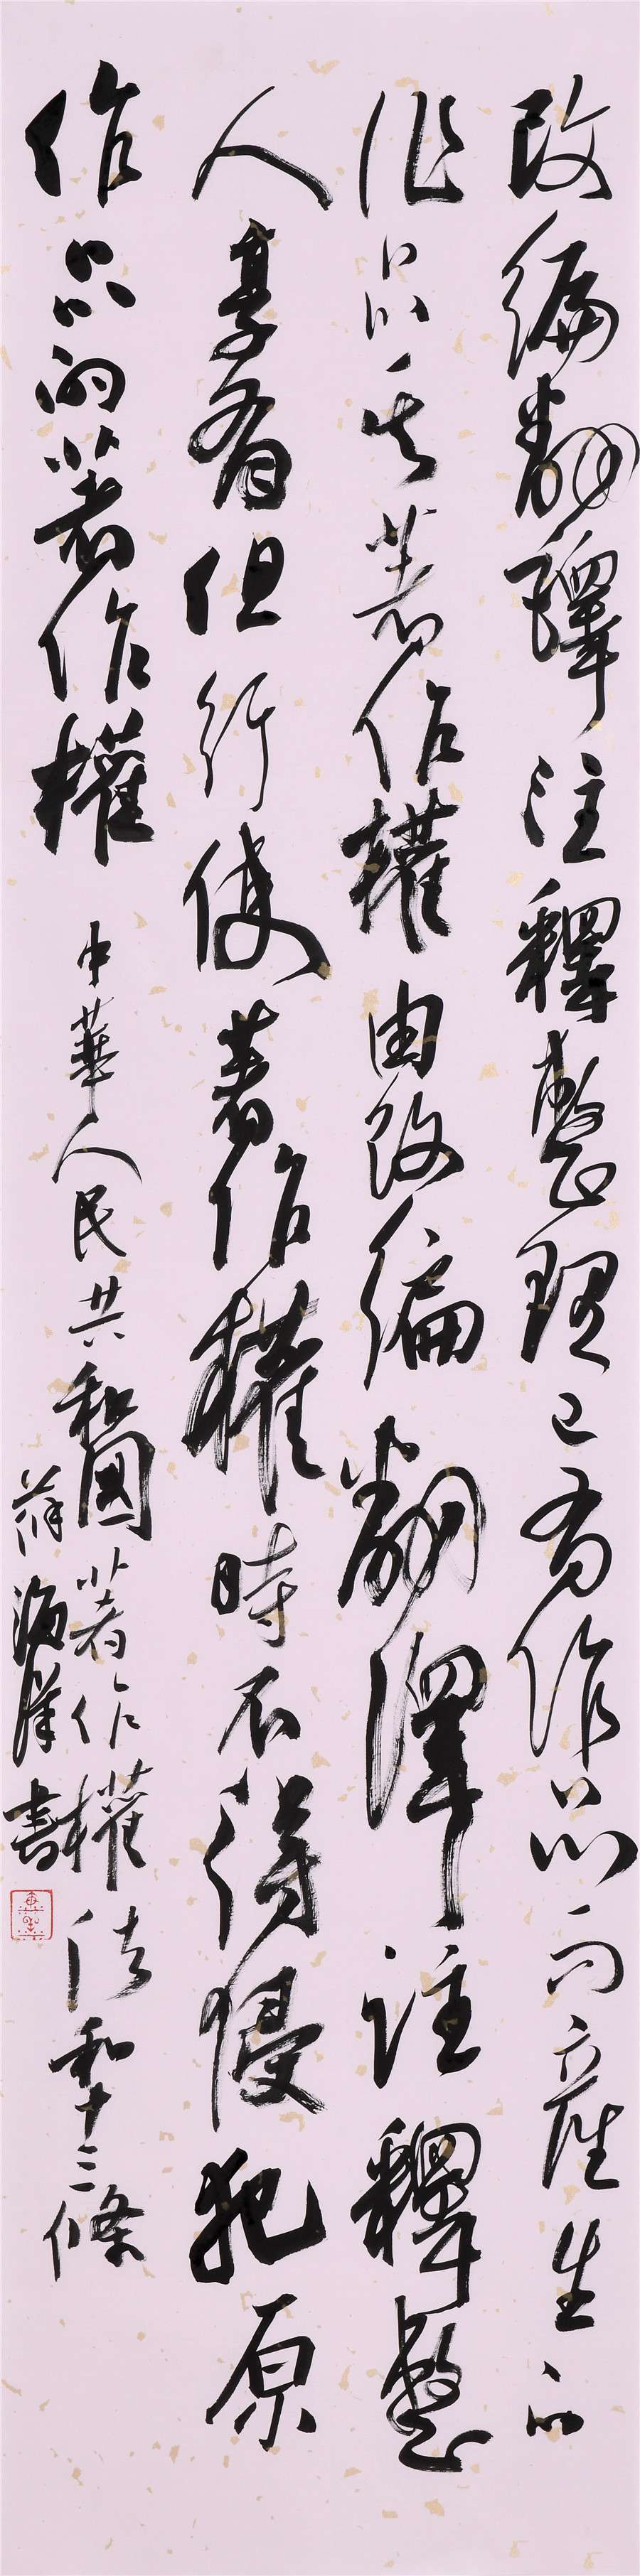 改編翻譯注釋整理已有作品而產生的
作品其著作權由改編翻譯註釋整
人享有但行使著作權時不得侵犯原
作品的著作權
中華人民共和國著作權法第十三條
薛海洋書